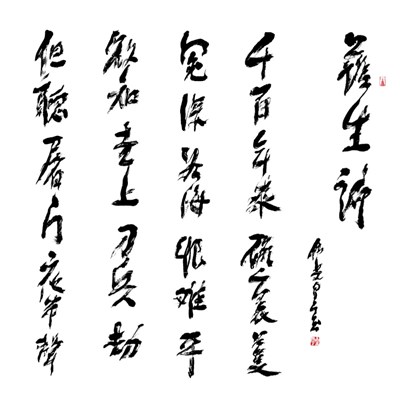 護生诗
千百年来碗裏羹
冤深若海恨难平
欲知世上刀兵劫
但聽屠门夜半聲